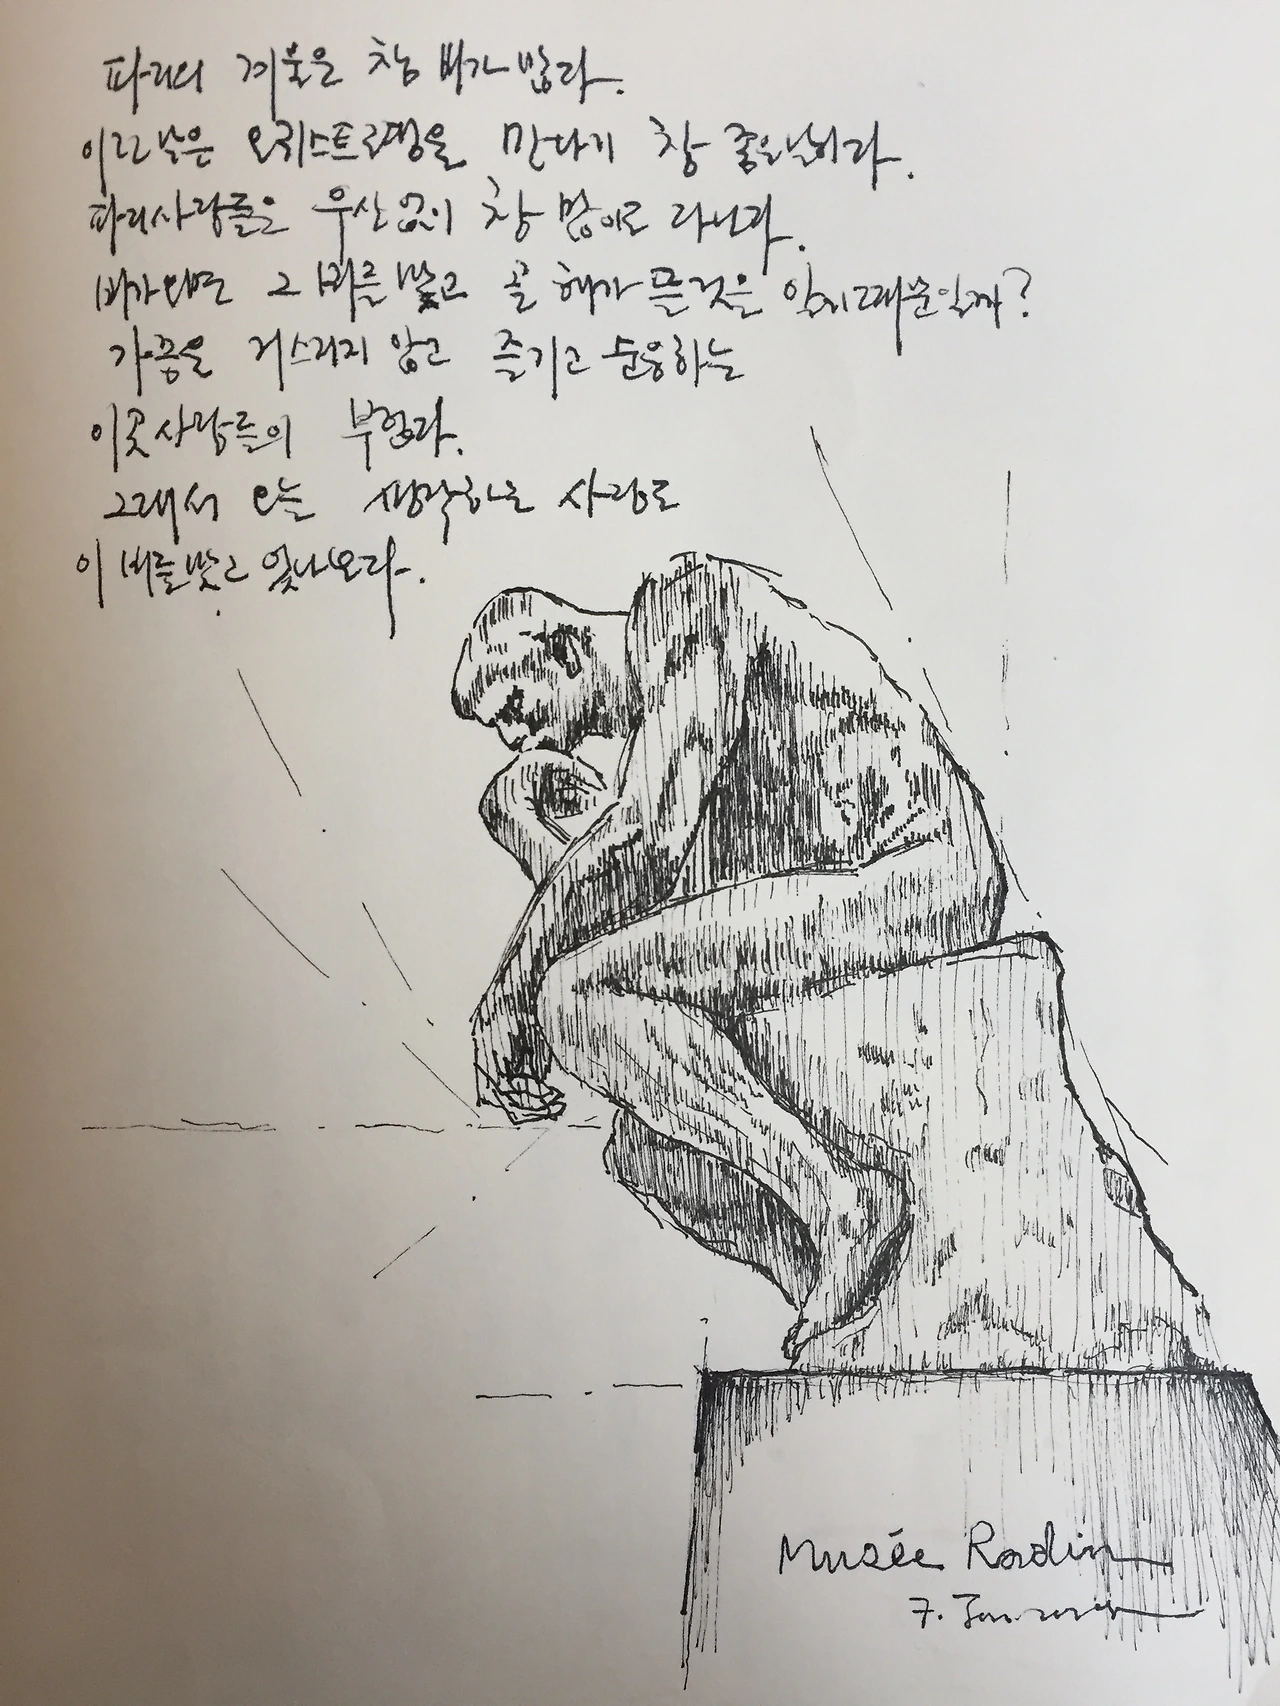 파리의 겨울은 참 비가 많다.
이런날은 오귀스트로댕을 만나기 참 좋은날이다.
파리사람들은 우산없이 참 많이로 다닌다.
비가오면 그 비를 맞고 곧 해가 뜰것을 알기때문일까?
가끔은 거스리지 않고 즐기고 순응하는
이곳사람들의 부럽다.
그래서 오늘 생각하는 사람도
이 비를맞고 있나보다.
Musée Rodin
7.